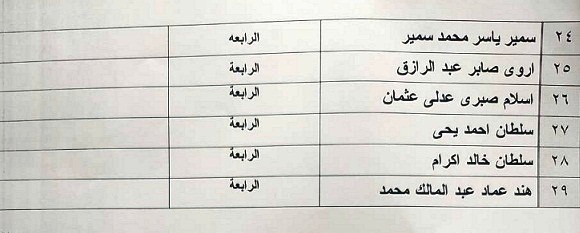 ٢٤ سمير ياسر محمد سمير الرابعه
٢٥ اروى صابر عبد الرازق الرابعة
٢٦ اسلام صبرى عدلى عثمان الرابعة
٢٧ سلطان احمد يحى الرابعة
٢٨ سلطان خالد اكرام الرابعة
٢٩ هند عماد عبد المالك محمد الرابعة